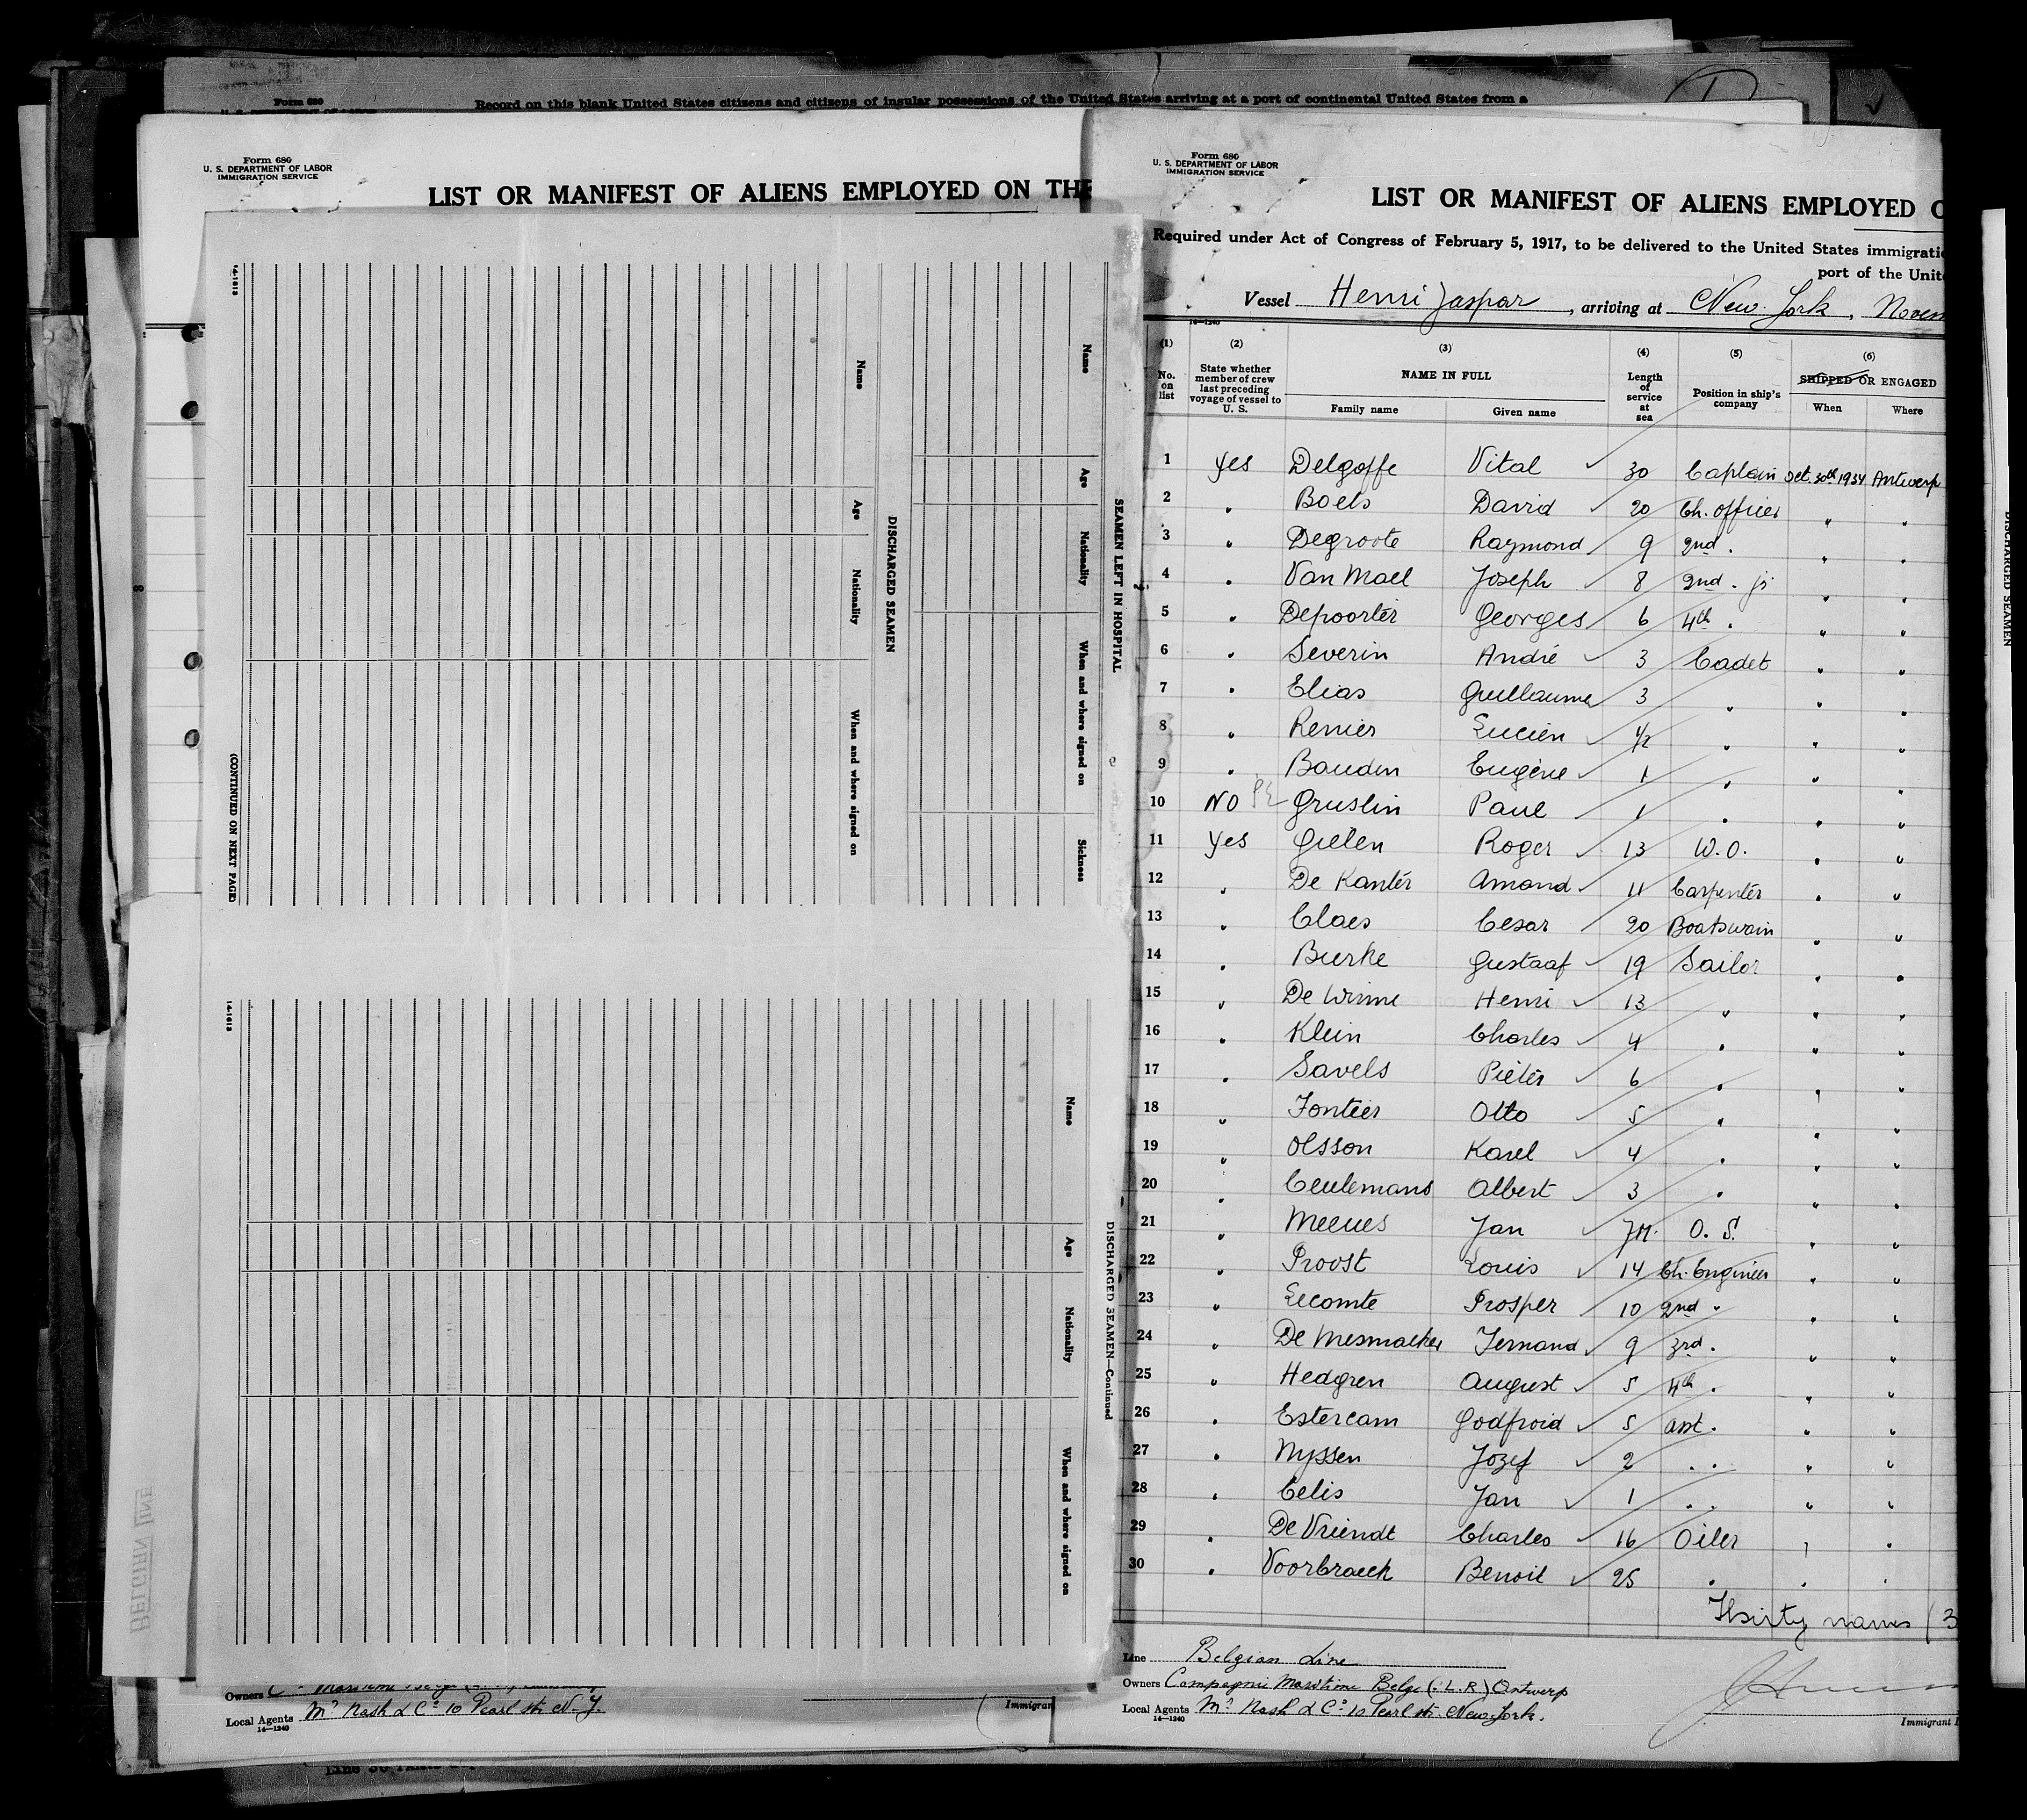 Form 680
Record on this blank United States citizens and citizens of insular possessions of the United States arriving at a port of continental United States from a
Form 680
U. S. DEPARTMENT OF LABOR
IMMIGRATION SERVICE
LIST OR MANIFEST OF ALIENS EMPLOYED ON THE
14-1613
Name
Age
Nationality
When and where signed on
(CONTINUED ON NEXT PAGE
DISCHARGED SEAMEN
Name
Age
Nationality
When and where signed on
Sickness
SEAMEN LEFT IN HOSPITAL
14-1613
Name
Age
Nationality
When and where signed on
DISCHARGED SEAMEN—Continued
BELGIAN LINE
Owners
Local Agents Mrs Nash & Co 10 Pearl str. N. Y.
14—1240
Immigran
Form 680
U. S. DEPARTMENT OF LABOR
IMMIGRATION SERVICE
LIST OR MANIFEST OF ALIENS EMPLOYED O
Required under Act of Congress of February 5, 1917, to be delivered to the United States immigratio
port of the Unite
Vessel Henri Jaspar, arriving at New York, Novem
14—1240
(1) (2) (3) (4) (5) (6)
No. on list State whether member of crew last preceding voyage of vessel to U. S. NAME IN FULL Length of service at sea Position in ship's company SHIPPED OR ENGAGED
Family name Given name When Where
1 Yes Delgoffe Vital 30 Captain Oct. 30th 1934 Antwerp
2 " Boels David 20 Ch. officer " "
3 " Degroote Raymond 9 2nd " " "
4 " Van Mael Joseph 8 2nd " jr " "
5 " Depoorter Georges 6 4th " " "
6 " Severin André 3 Cadet " "
7 " Elias Guillaume 3 " " "
8 " Renier Lucien 1/2 " " "
9 " Baudin Eugène 1 " " "
10 NO Gruslin Paul 1 " " "
11 Yes Gielen Roger 13 W.O. " "
12 " De Kanter Amand 11 Carpenter " "
13 " Claes Cesar 20 Boatswain " "
14 " Burke Gustaaf 19 Sailor " "
15 " De Winne Henri 13 " " "
16 " Klein Charles 4 " " "
17 " Savels Pieter 6 " " "
18 " Fontier Otto 5 " " "
19 " Olsson Karel 4 " " "
20 " Ceulemans Albert 3 " " "
21 " Meeues Jan 7M. O. S. " "
22 " Proost Louis 14 Ch. Engineer " "
23 " Lecomte Prosper 10 2nd " " "
24 " De Mesmaeker Fernand 9 3rd " " "
25 " Hedgren August 5 4th " " "
26 " Estercam Godfroid 5 asst. " "
27 " Nyssen Jozef 2 " " " "
28 " Celis Jan 1 " " " "
29 " De Vriendt Charles 16 Oiler " "
30 " Voorbraeck Benoit 25 " " "
Thirty names (3
Line Belgian Line
Owners Compagnie Maritime Belge (. L. R.) Antwerp
Local Agents Mrs Nash & Co 10 Pearl str. New York.
14—1240
Immigrant I
DISCHARGED SEAMEN